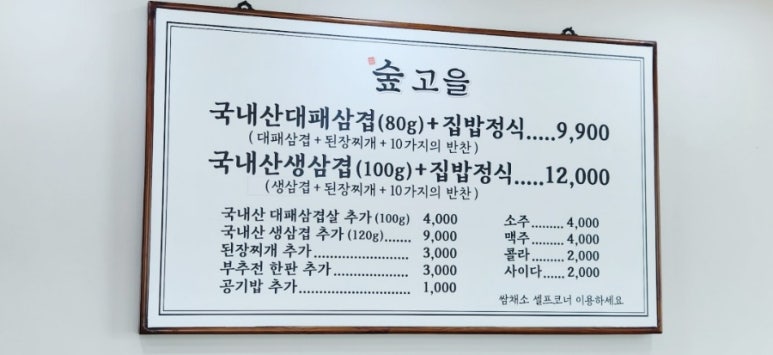 숲고을
국내산대패삼겹(80g)+집밥정식.....9,900
(대패삼겹+된장찌개+10가지의 반찬)
국내산생삼겹(100g)+집밥정식.....12,000
(생삼겹+된장찌개+10가지의 반찬)
국내산 대패삼겹살 추가(100g) 4,000
국내산 생삼겹 추가(120g)....... 9,000
된장찌개 추가........................ 3,000
부추전 한판 추가.................... 3,000
공기밥 추가........................... 1,000
소주........ 4,000
맥주........ 4,000
콜라........ 2,000
사이다...... 2,000
쌈채소 셀프코너 이용하세요